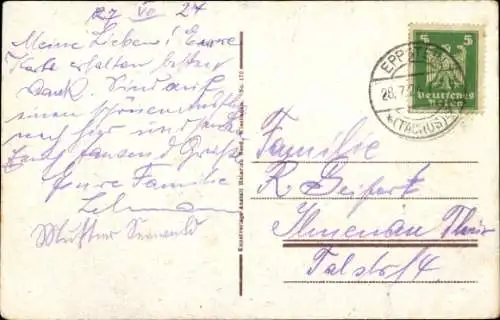 27 VII 24
Meine Lieben! Eure
Karte erhalten besten
Dank. Sind auf
einen schönen Ausflug
nach hier und senden
Euch tausend Grüße
Eure Familie
Lehmann
Mutter
Kunstverlags-Anstalt
No. 170
5 5
Deutsches
Reich
EPPSTEIN
28.7.
(TAUNUS)
Familie
R. Seifert
Ilmenau Thür.
Talstr. 4